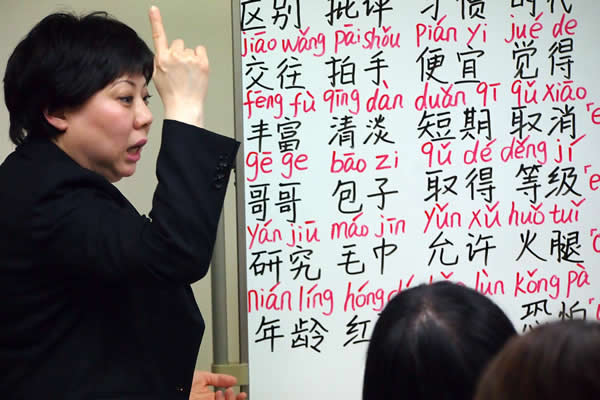 区别 批评 习惯 时代
jiāo wǎng pāi shǒu Pián yi jué de
交往 拍手 便宜 觉得
fēng fù qīng dàn duǎn qī qǔ xiāo
丰富 清淡 短期 取消
gē ge bāo zi qǔ dé děng jí
哥哥 包子 取得 等级
yán jiū máo jīn yǔn xǔ huǒ tuǐ
研究 毛巾 允许 火腿
nián líng hóng lùn kǒng pà
年龄 红 恐怕